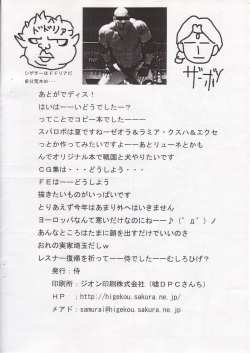 ドドリアン
シゲキーはドドリアだ
多分荒木め…
ザーボン
あとがでディス！
はいはーーいどうでしたー？
ってことでコピー本でしたーーー
スパロボは夏ですねーゼオラ＆ラミア・クスハ＆エクセ
っとか作ってみたいですよーーあとリューネとかも
んでオリジナル本で戦国と犬やりたいです
ＣＧ集は・・・どうしよう・・・
ＦＥはーーどうしよう
描きたいものがいっぱいです
とりあえず今年はあまり外へはいきません
ヨーロッパなんて寒いだけなのにねーー♪（゜д゜）ノ
あんなところはたまに顔を出すだけでいいのさ
おれの実家埼玉だしｗ
レスナー復帰を祈ってーー侍でしたーーむしろひげ？
発行：侍
印刷所：ジオン印刷株式会社（嘘ＤＰＣさんち）
ＨＰ　：http://higekou.sakura.ne.jp/
メアド：samurai@higekou.sakura.ne.jp